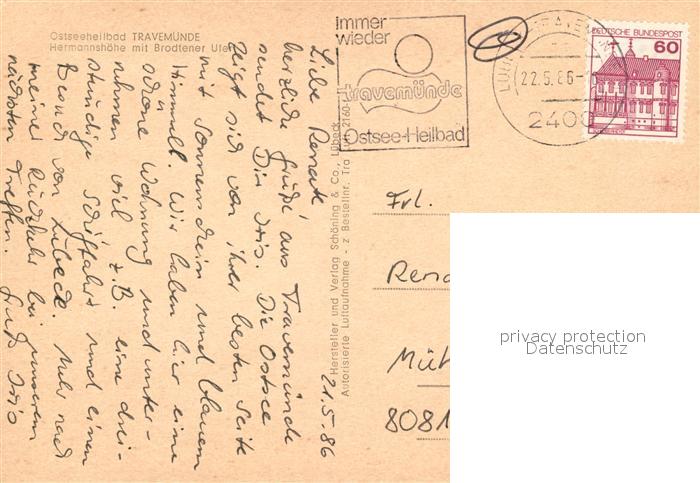 Ostseeheilbad TRAVEMÜNDE
Hermannshöhe mit Brodtener Ufer
Immer
wieder
travemünde
Ostsee-Heilbad
22.5.86
2400
DEUTSCHE BUNDESPOST
60
21.5.86
Liebe Renate,
herzliche Grüße aus Travemünde
sendet Dir Iris. Die Ostsee
zeigt sich von ihrer besten Seite
mit Sonnenschein und blauem
Himmel. Wir haben hier eine
schöne Wohnung und unter-
nehmen viel z.B. eine drei-
stündige Schiffahrt und einen
Besuch von Lübeck. Mehr nach
meiner Rückkehr bei unserem
nächsten Treffen. Gruß Iris
Hersteller und Verlag Schöning & Co., Lübeck
Autorisierte Luftaufnahme - z Bestellnr. Tra
Frl.
Rena
Müt
8081
privacy protection
Datenschutz